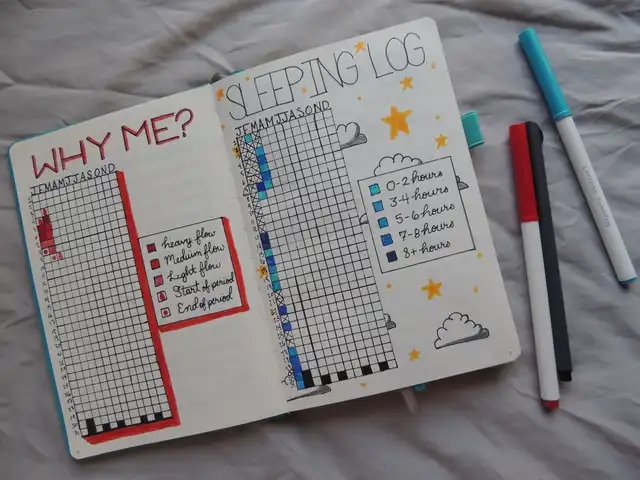 WHY ME?
JFMAMJJASOND
heavy flow
Medium flow
Light flow
Start of period
End of period
SLEEPING LOG
JFMAMJJASOND
0-2 hours
3-4 hours
5-6 hours
7-8 hours
8+ hours